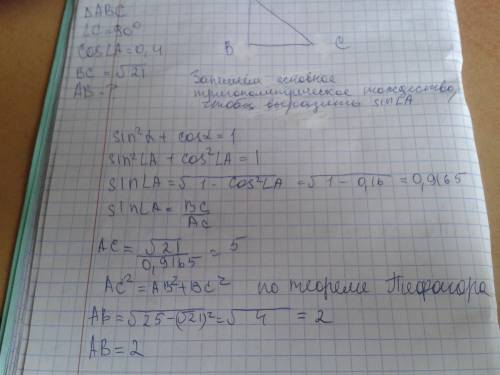 ΔABC
∠C=90°
cos∠A=0,4
BC=√21
AB-?
B C
Запишем основное
тригонометрическое тождество,
чтобы выразить sin∠A
sin²α + cosα = 1
sin²∠A + cos²∠A = 1
sin∠A = √1 - cos²∠A = √1 - 0,16 = 0,9165
sin∠A = BC/AC
AC = √21/0,9165 = 5
AC² = AB² + BC² по теореме Пефагора
AB = √25-(√21)² = √4 = 2
AB = 2